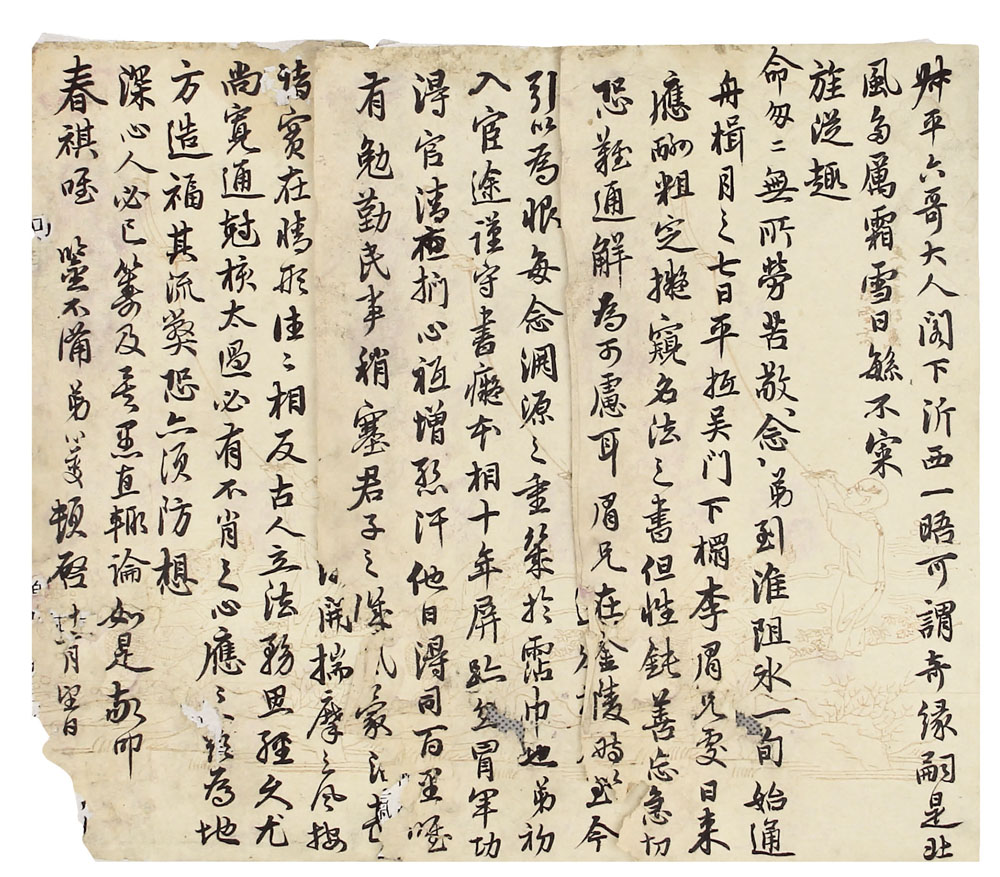 叔平六哥大人阁下沂西一晤可謂奇缘嗣是北
風多厲霜雪日繇不寀
旌從趣
命匆二無所勞苦敬念、弟到淮阻冰一旬始通
舟楫月之七日平抵吴門下榻李眉兄處日来
應酬粗定擬窺名法之書但性鈍善忘急切
恐難通解為可慮耳眉兄在金陵時
至今
引以為恨每念淵源之重築於霑巾也弟初
入宦途謹守書癡本相十年屏跡公冒军功
得官清夜捫心祗增愁汗他日得同百里唯
有勉勤民事稍塞君子之
家
開揣摩之風按
情實在情形往二相反古人立法務思經久尤
尚寛通尅核太過必有不肖之心應之
為地
方造福其流獘恐亦須防想
深心人必已筹及
愚直輙論如是敬叩
春祺唯 鑒不備 弟
頓啓 十一月望日